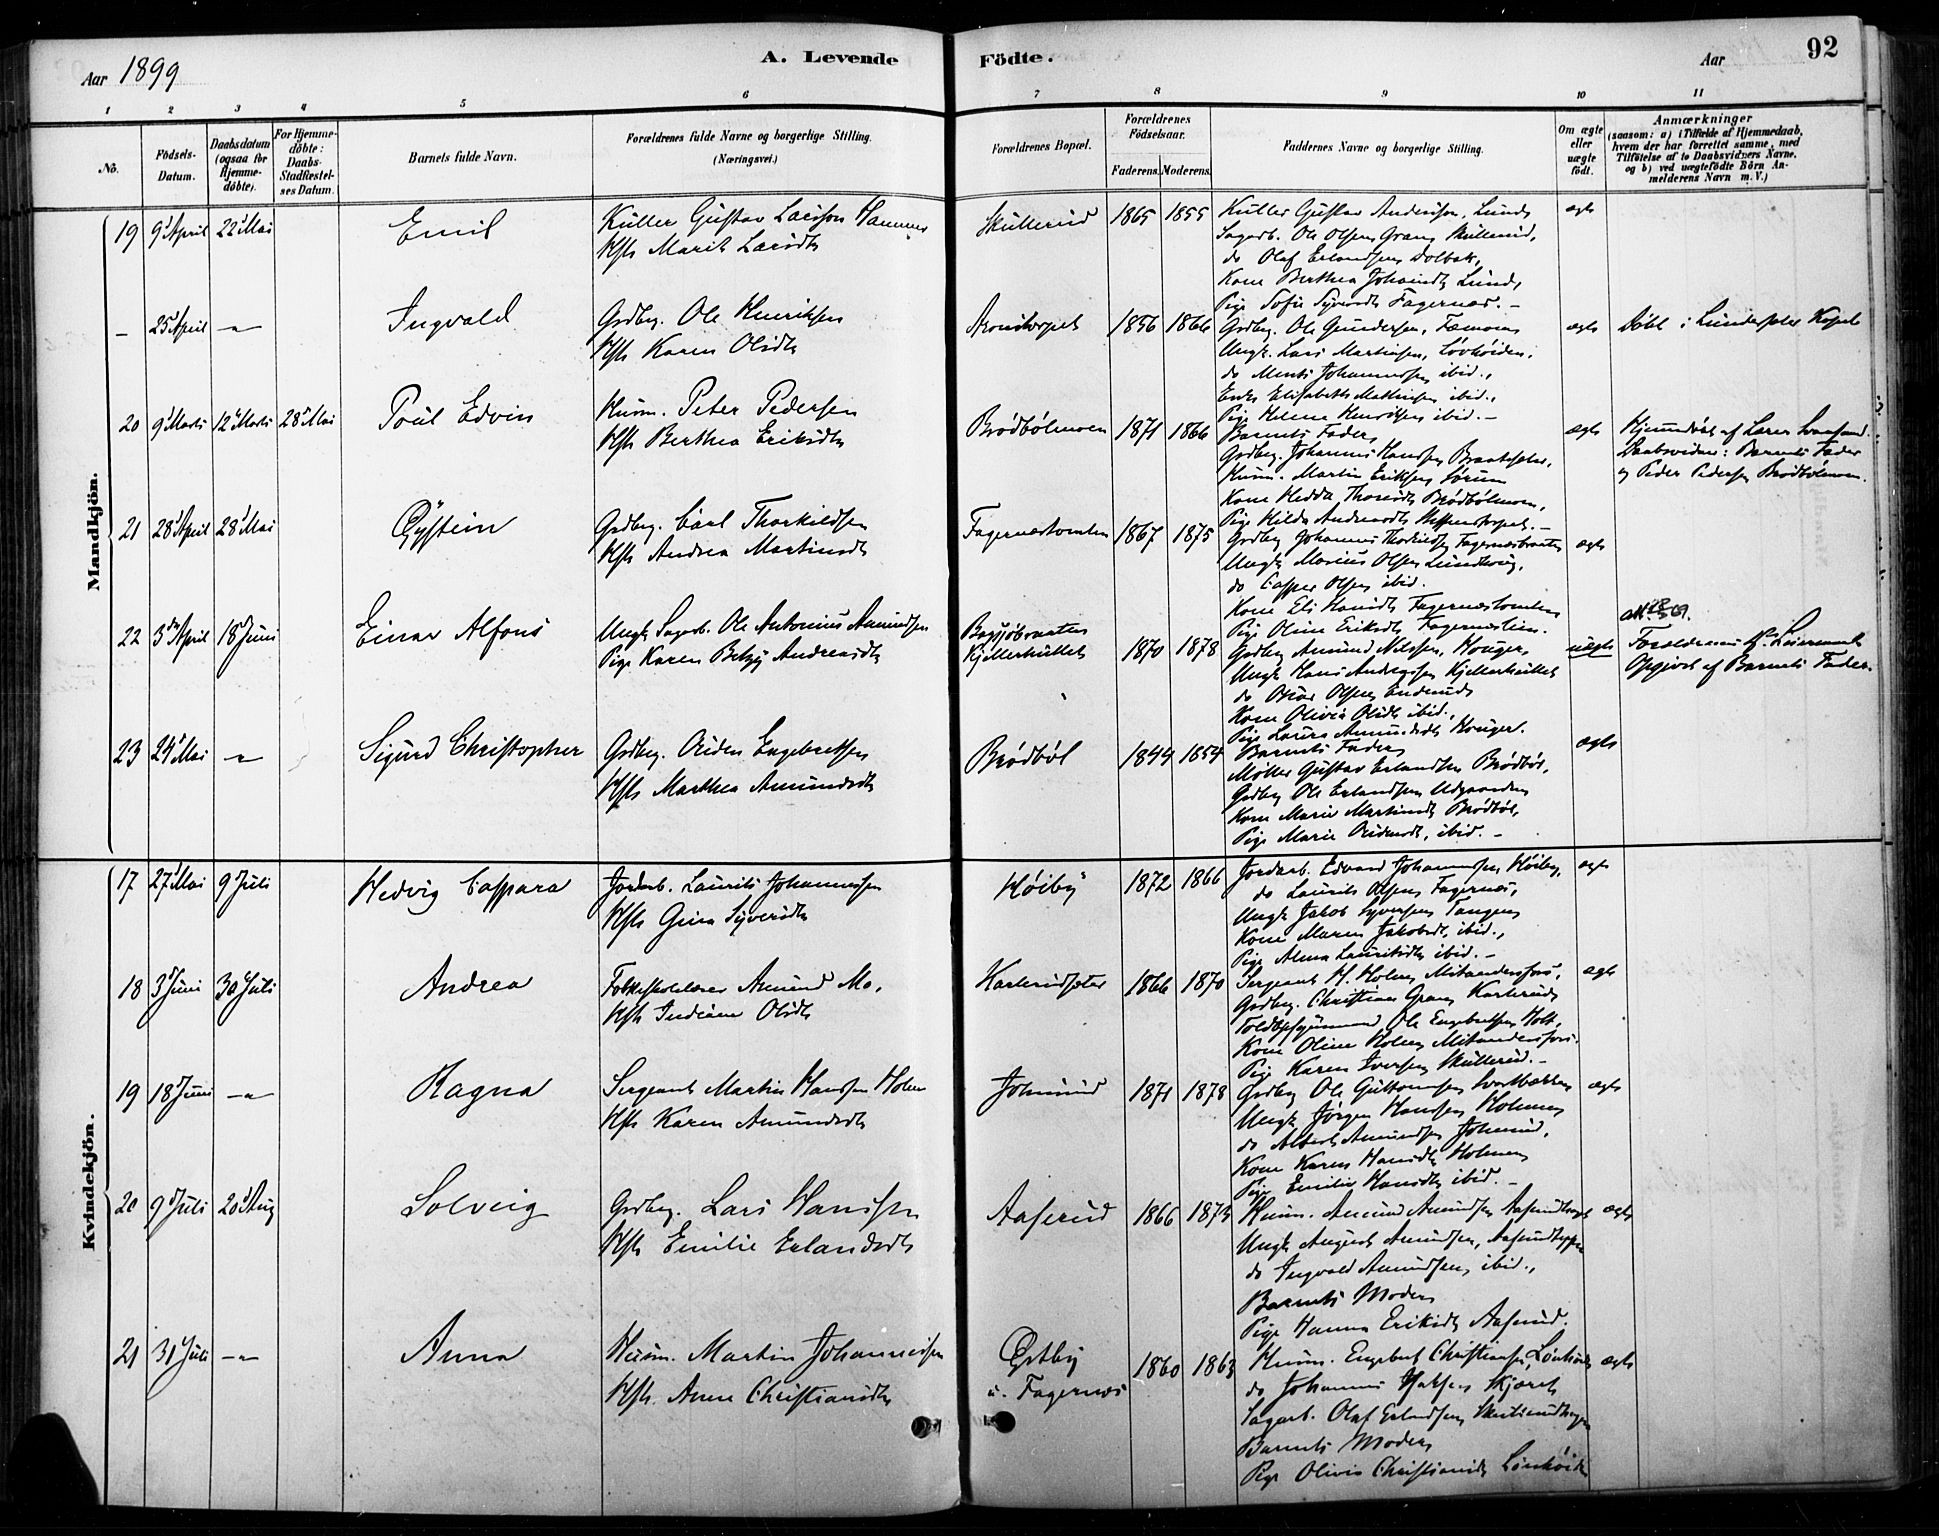 Aar 1899
A. Levende
Födte.
Aar
92
1 2 3 4 5 6 7 8 9 10 11
No.
Födsels-
Datum.
Daabsdatum
(ogsaa for
Hjemme-
döbte).
For Hjemme-
döbte:
Daabs-
Stadfæstel-
ses Datum.
Barnets fulde Navn.
Forældrenes fulde Navne og borgerlige Stilling.
(Næringsvei.)
Forældrenes Bopæl.
Forældrenes
Födselsaar.
Faderens. Moderens.
Faddernes Navne og borgerlige Stilling.
Om ægte
eller
uægte
födt.
Anmærkninger
(saasom: a) i Tilfælde af Hjemmedaab,
hvem der har forrettet samme, med
Tilföielse af to Daabsvidners Navne,
og b) ved uægtefödte Börn An-
melderens Navn m. V.)
Mandkjön.
19 9 April 22 Mai Emil
Kuller Gustav Larsson Hammer
Hst. Marit Larsdt.
Skullerud 1865 1855
Kuller Gustav Andersson, Lund,
Sagarb. Ole Olsen Gran, Skullerud,
do Olaf Erlandsen Dolbak,
Kone Berthea Johansdt. Lund,
Pige Sofie Syversdt. Fagernæs. –
ægte
– 25 April –"– Ingvald
Grdbrg. Ole Henriksen
Hst. Karen Olsdt.
1856 1866
Grdbrg. Ole Gundersen,
Ungk. Lars Martinsen, Løvhøiden,
do Johannessen ibid.,
Enke Elisabeth ibid.,
Pige Helene Henriksen ibid. –
ægte
Døbt i Lundersæter Kapel
20 9 Marts 12 Marts 28 Mai Poul Edvin
Husm. Peter Pedersen
Hst. Berthea Eriksdt.
Brødbølmoen 1871 1866
Barnets Fader,
Grdbrg. Johannes Hansen Braatesæter,
Husm. Martin Eriksen Sørum
Kone Hedda Brødbølmoen,
Pige Hilda Andreasdt.
ægte
Hjemmedøbt af Lærer
Daabsvidner: Barnets Fader
og Peder Pedersen Brødbølmoen.
21 28 April 28 Mai Øystein
Grdbrg. Carl Thorkildsen
Hst. Andrea Martinsdt.
Fagernæstomten 1867 1875
Grdbrg Johannes Thorkildsen Fagernæsbraaten
Ungk. Marius Olsen Lundkrog,
do Casper Olsen ibid.
Kone Eli Hansdt. Fagernæstomten
Pige Oline Eriksdt. Fagernæslien.
ægte
22 3 April 18 Juni Einar Alfons
Ungk. Sagarb. Ole Antonius Amundsen
Pige Karen Betzy Andreasdt.
Bogsjøbraaten
Kjellerhullet 1870 1878
Grdbrg Amund Nilssen, Houger,
Ungk. Hans Andersen Kjellerhullet
do Oskar Olsen
Kone Olivia Olsdt. ibid.,
Pige Laura Amundsdt. Houger.
uægte
Forældrenes 1ste Leiermaal
Opgivet af Barnets Fader.
23 24 Mai –"– Sigurd Christopher
Grdbrg. Auden Engebretsen
Hst. Marthea Amundsdt.
Brødbøl 1844 1854
Barnets Fader,
Møller Gustav Erlandsen Brødbøl,
Grdbrg Ole Erlandsen
Kone Marie Martinsdt. Brødbøl,
Pige Marie Audensdt. ibid. –
ægte
Kvindekjön.
17 27 Mai 9 Juli Hedvig Caspara
Jordarb. Laurits Johannessen
Hst. Gina Syversdt.
Høiby 1872 1866
Jordarb. Edvard Johannessen, Høiby,
do Laurits Olsen Fagernæs,
Ungk. Jakob Syversen Tangen
Kone Maren Jakobsdt. ibid.,
Pige Alma Lauritsdt. ibid. –
ægte
18 3 Juni 30 Juli Andrea
Folkeskolelærer Amund Mo,
Hst. Indiane Olsdt.
Karlerudsæter 1866 1870
Sergeant H. Holmen, Mitandersfors,
Grdbrg. Christian Gran, Karlerud,
Toldopsynsmand Ole Engebretsen Holt,
Kone Oline Holmen Mitandersfors.
Pige Karen Iversen Skullerud. –
ægte
19 18 Juni –"– Ragna
Sergeant Martin Hanssen Holen
Hst. Karen Amundsdt.
Johnsrud 1871 1878
Grdbrg Ole Guttormsen Svartbækken
Ungk. Jørgen Hanssen Holmen
do Albert Amundsen Johnsrud,
Kone Karen Hansdt. Holmen
Pige Emilie Hansdt. ibid. –
ægte
20 9 Juli 20 Aug Solveig
Grdbrg. Lars Hanssen
Hst. Emilie Erlandsdt.
Aaserud 1866 1873
Husm. Amund Amundsen
Ungk. August Amundsen,
do Ingvald Amundsen, ibid.,
Barnets Moder,
Pige Hanna Eriksdt. Aaserud.
ægte
21 31 Juli –"– Anna
Husm. Martin Johannessen
Hst. Anne Christiansdt.
Østby
u. Fagernæs 1860 1863
Husm. Engebret Christiansen,
do Johannes Kjæret
Sagarb. Olaf Erlandsen
Barnets Moder,
Pige Olivia Christiansdt.
ægte